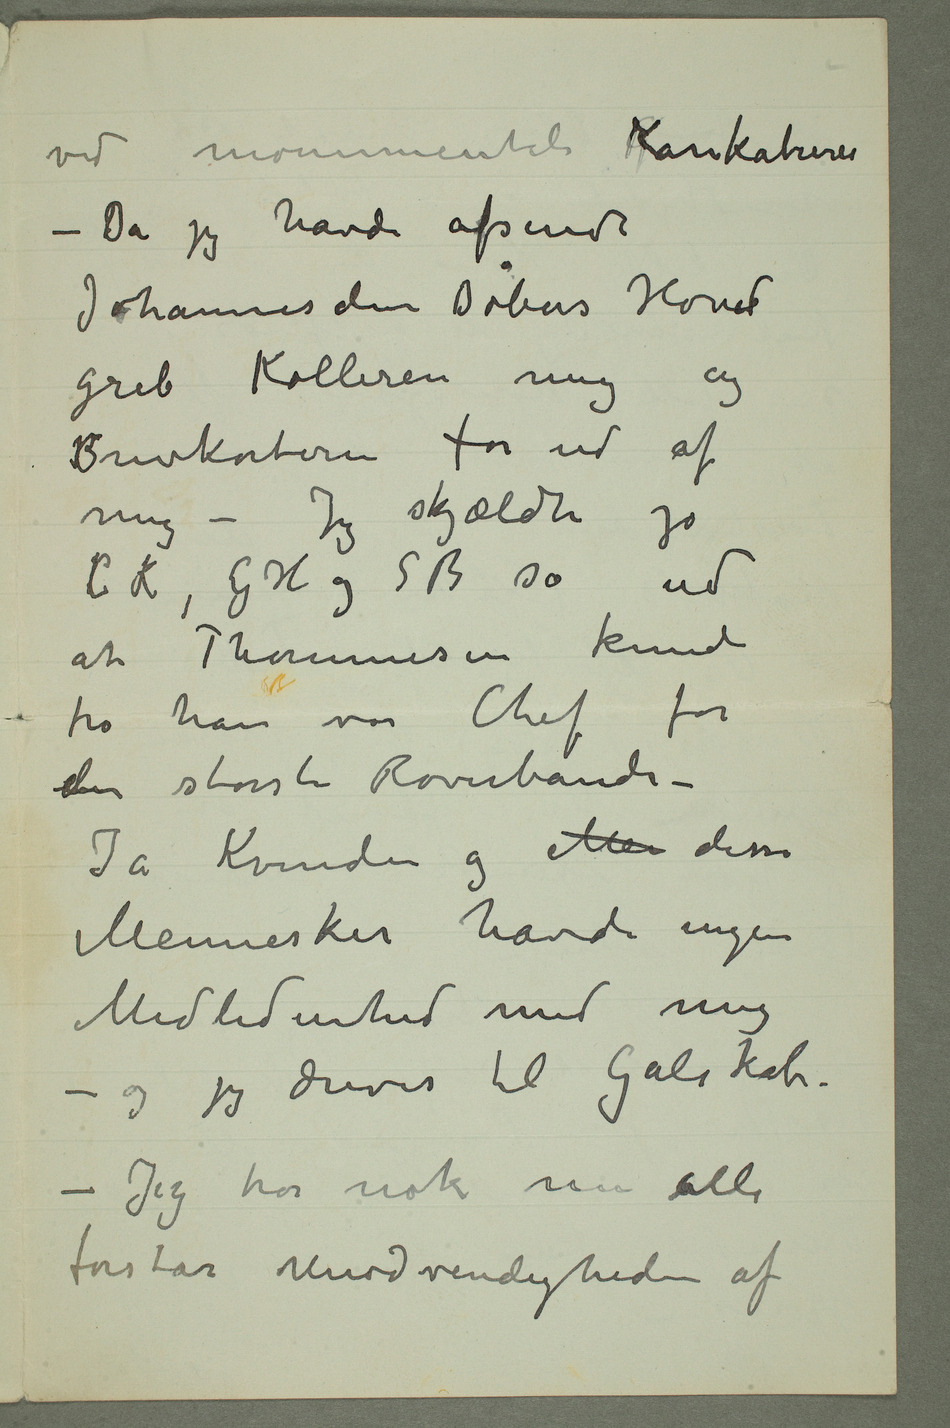 ved monumentale Karikaturer
– Da jeg havde afsendt
Johannes den Døbers Hoved
greb Kolleren mig og
Brevkortene for ud af
mig – Jeg skjældte jo
CK, GH og SB så ud
at Thommesen kunde
SB
tro han var Chef for
den største Røverbande –
Ja Kvinden og Men disse
Mennesker havde ingen
Medlidenhed med mig
– og jeg dreves til Galskab –
– Jeg tror nok nu alle
forstår Nødvendigheden af